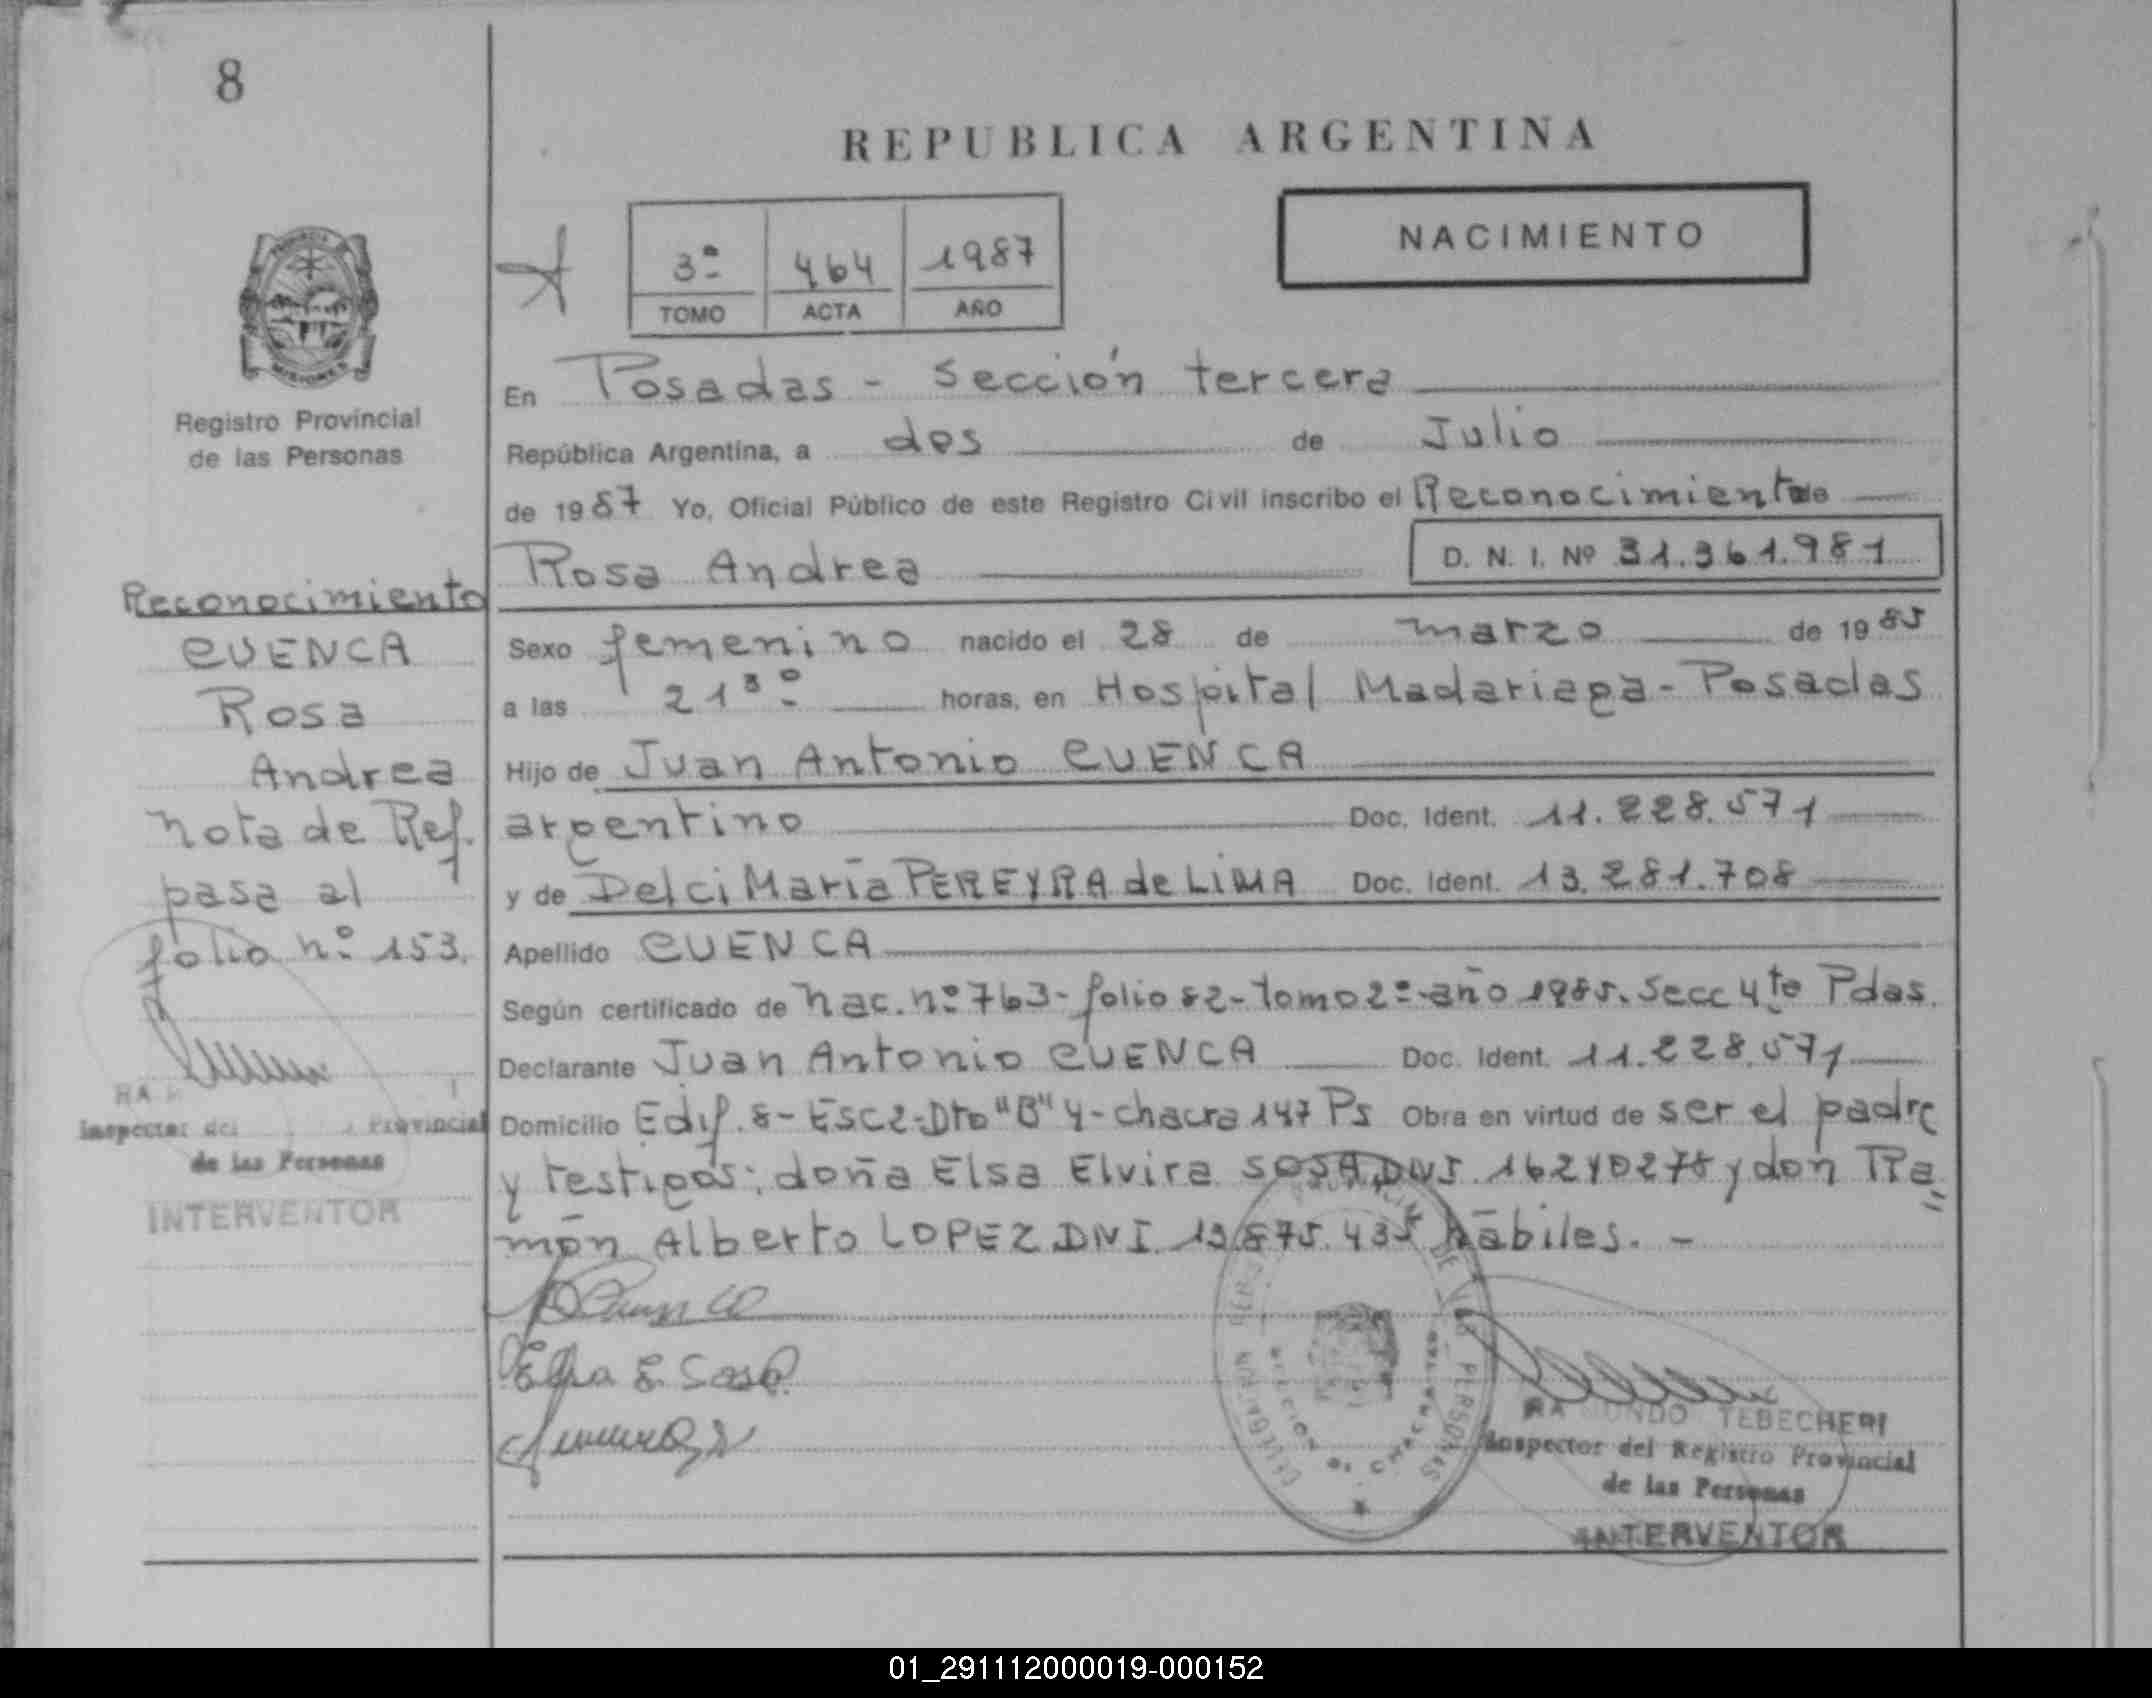 8
REPUBLICA ARGENTINA
NACIMIENTO
3º 464 1987
TOMO ACTA AÑO
MISIONES
Registro Provincial
de las Personas
En Posadas - Sección tercera
República Argentina, a dos de Julio
de 1987 Yo, Oficial Público de este Registro Civil inscribo el Reconocimiento de
Rosa Andrea D. N. I. Nº 31.361.981
Sexo femenino nacido el 28 de marzo de 1985
a las 21 30 horas, en Hospital Madariaga - Posadas
Hijo de Juan Antonio CUENCA
argentino Doc. Ident. 11.228.571
y de Delci María PEREYRA de LIMA Doc. Ident. 13.281.708
Apellido CUENCA
Según certificado de Nac. nº 763 - folio 82 - tomo 2º - año 1985. Secc 4ta Pdas.
Declarante Juan Antonio CUENCA Doc. Ident. 11.228.571
Domicilio Edif. 8 - Esc 2 - Dto "B" 4 - chacra 147 Ps Obra en virtud de ser el padre
y testigos: doña Elsa Elvira SOSA DNI. y don Ra
món Alberto LOPEZ DNI. 13.875.435 hábiles. -
Elsa E. Sosa
Reconocimiento
CUENCA
Rosa
Andrea
Nota de Ref.
pasa al
folio nº 153.
Inspector del Provincial
de las Personas
INTERVENTOR
TEBECHERI
Inspector del Registro Provincial
de las Personas
INTERVENTOR
01_291112000019-000152